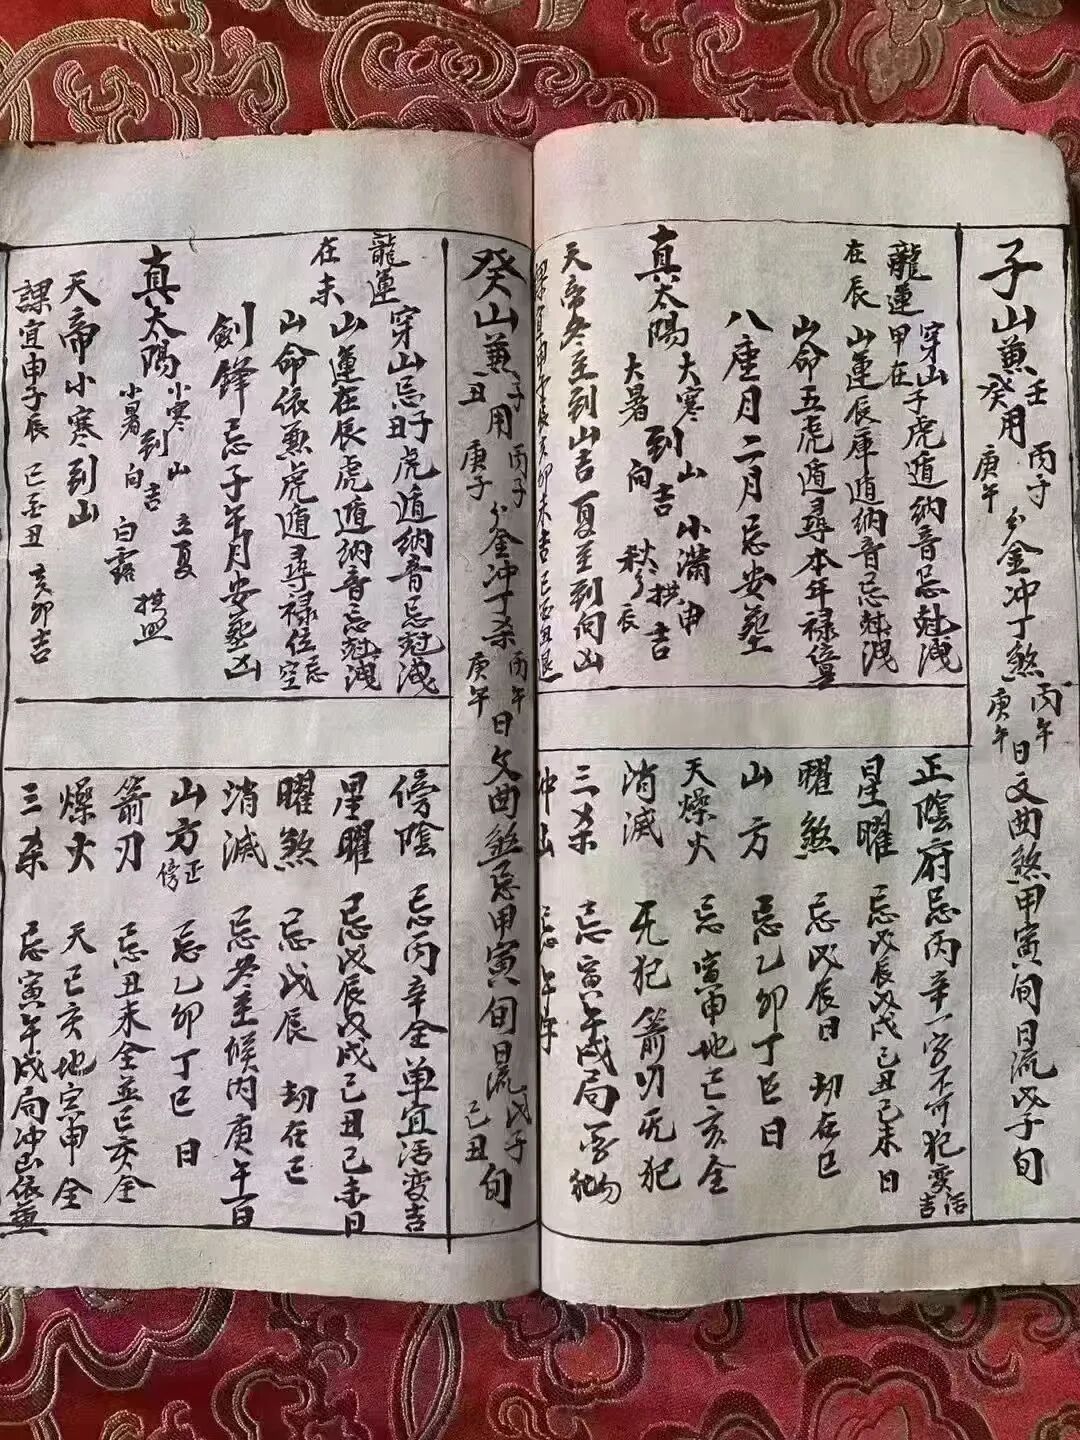 子山兼壬癸用丙子庚午分金冲丁煞丙午庚午日文曲煞甲寅旬日流戊子旬
龍運甲在
在辰
穿山子虎遁納音忌尅洩
山運辰庫遁納音忌尅洩
山命五虎遁尋本年祿位
八座月二月忌安塟
真太陽大寒到山吉小滿申拱吉
大暑向秋分辰
天帝冬至到山吉夏至到向凶
正陰府忌丙辛一字不可犯活变吉
星曜忌戊辰戊戌己丑己未日
曜煞忌戊辰日劫在巳
山方忌乙卯丁巳日
天燥火忌寅申地巳亥全
消滅无犯箭刃无犯
三杀忌寅午戌局
冲山忌午年
癸山兼子丑用丙子庚子分金冲丁杀丙午庚午日文曲煞忌甲寅旬日流戊子己丑旬
龍運
在未
穿山忌子丑虎遁納音忌尅洩
山運在辰虎遁納音忌尅洩
山命依兼虎遁尋祿位忌空
劍鋒忌子午月安塟凶
真太陽小寒到山吉立夏拱照
小暑向白露
天帝小寒到山
課宜申子辰巳酉丑亥卯吉
傍陰忌丙辛全单宜活变吉
星曜忌戊辰戊戌己丑己未日
曜煞忌戊辰劫在巳
消滅忌冬至候丙庚午一日
山方正傍忌乙卯丁巳日
箭刃忌丑未全並巳亥全
燥火天巳亥地寅申全
三杀忌寅午戌局冲山依兼